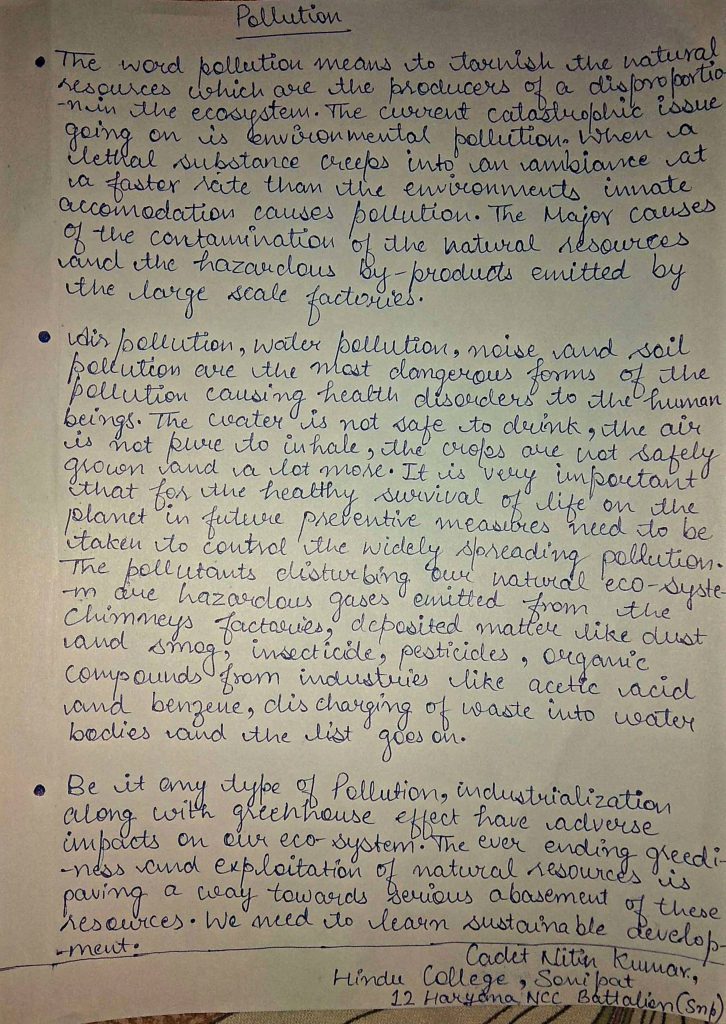 Pollution
• The word pollution means to tarnish the natural
resources which are the producers of a disproportio-
-nin the ecosystem. The current catastrophic issue
going on is environmental pollution. When a
lethal substance creeps into an ambiance at
a faster rate than the environments innate
accomodation causes pollution. The Major causes
of the contamination of the natural resources
and the hazardous by-products emitted by
the large scale factories.
• Air pollution, water pollution, noise and soil
pollution are the most dangerous forms of the
pollution causing health disorders to the human
beings. The water is not safe to drink, the air
is not pure to inhale, the crops are not safely
grown and a lot more. It is very important
that for the healthy survival of life on the
planet in future preventive measures need to be
taken to control the widely spreading pollution.
The pollutants disturbing our natural eco-syste-
-m are hazardous gases emitted from the
chimneys factories, deposited matter like dust
and smog, insecticide, pesticides, organic
compounds from industries like acetic acid
and benzene, discharging of waste into water
bodies and the list goes on.
• Be it any type of Pollution, industrialization
along with greenhouse effect have adverse
impacts on our eco-system. The ever ending greedi-
-ness and exploitation of natural resources is
paving a way towards serious abasement of these
resources. We need to learn sustainable develop-
-ment.
Cadet Nitin Kumar,
Hindu College, Sonipat
12 Haryana NCC Battalion (Snp)